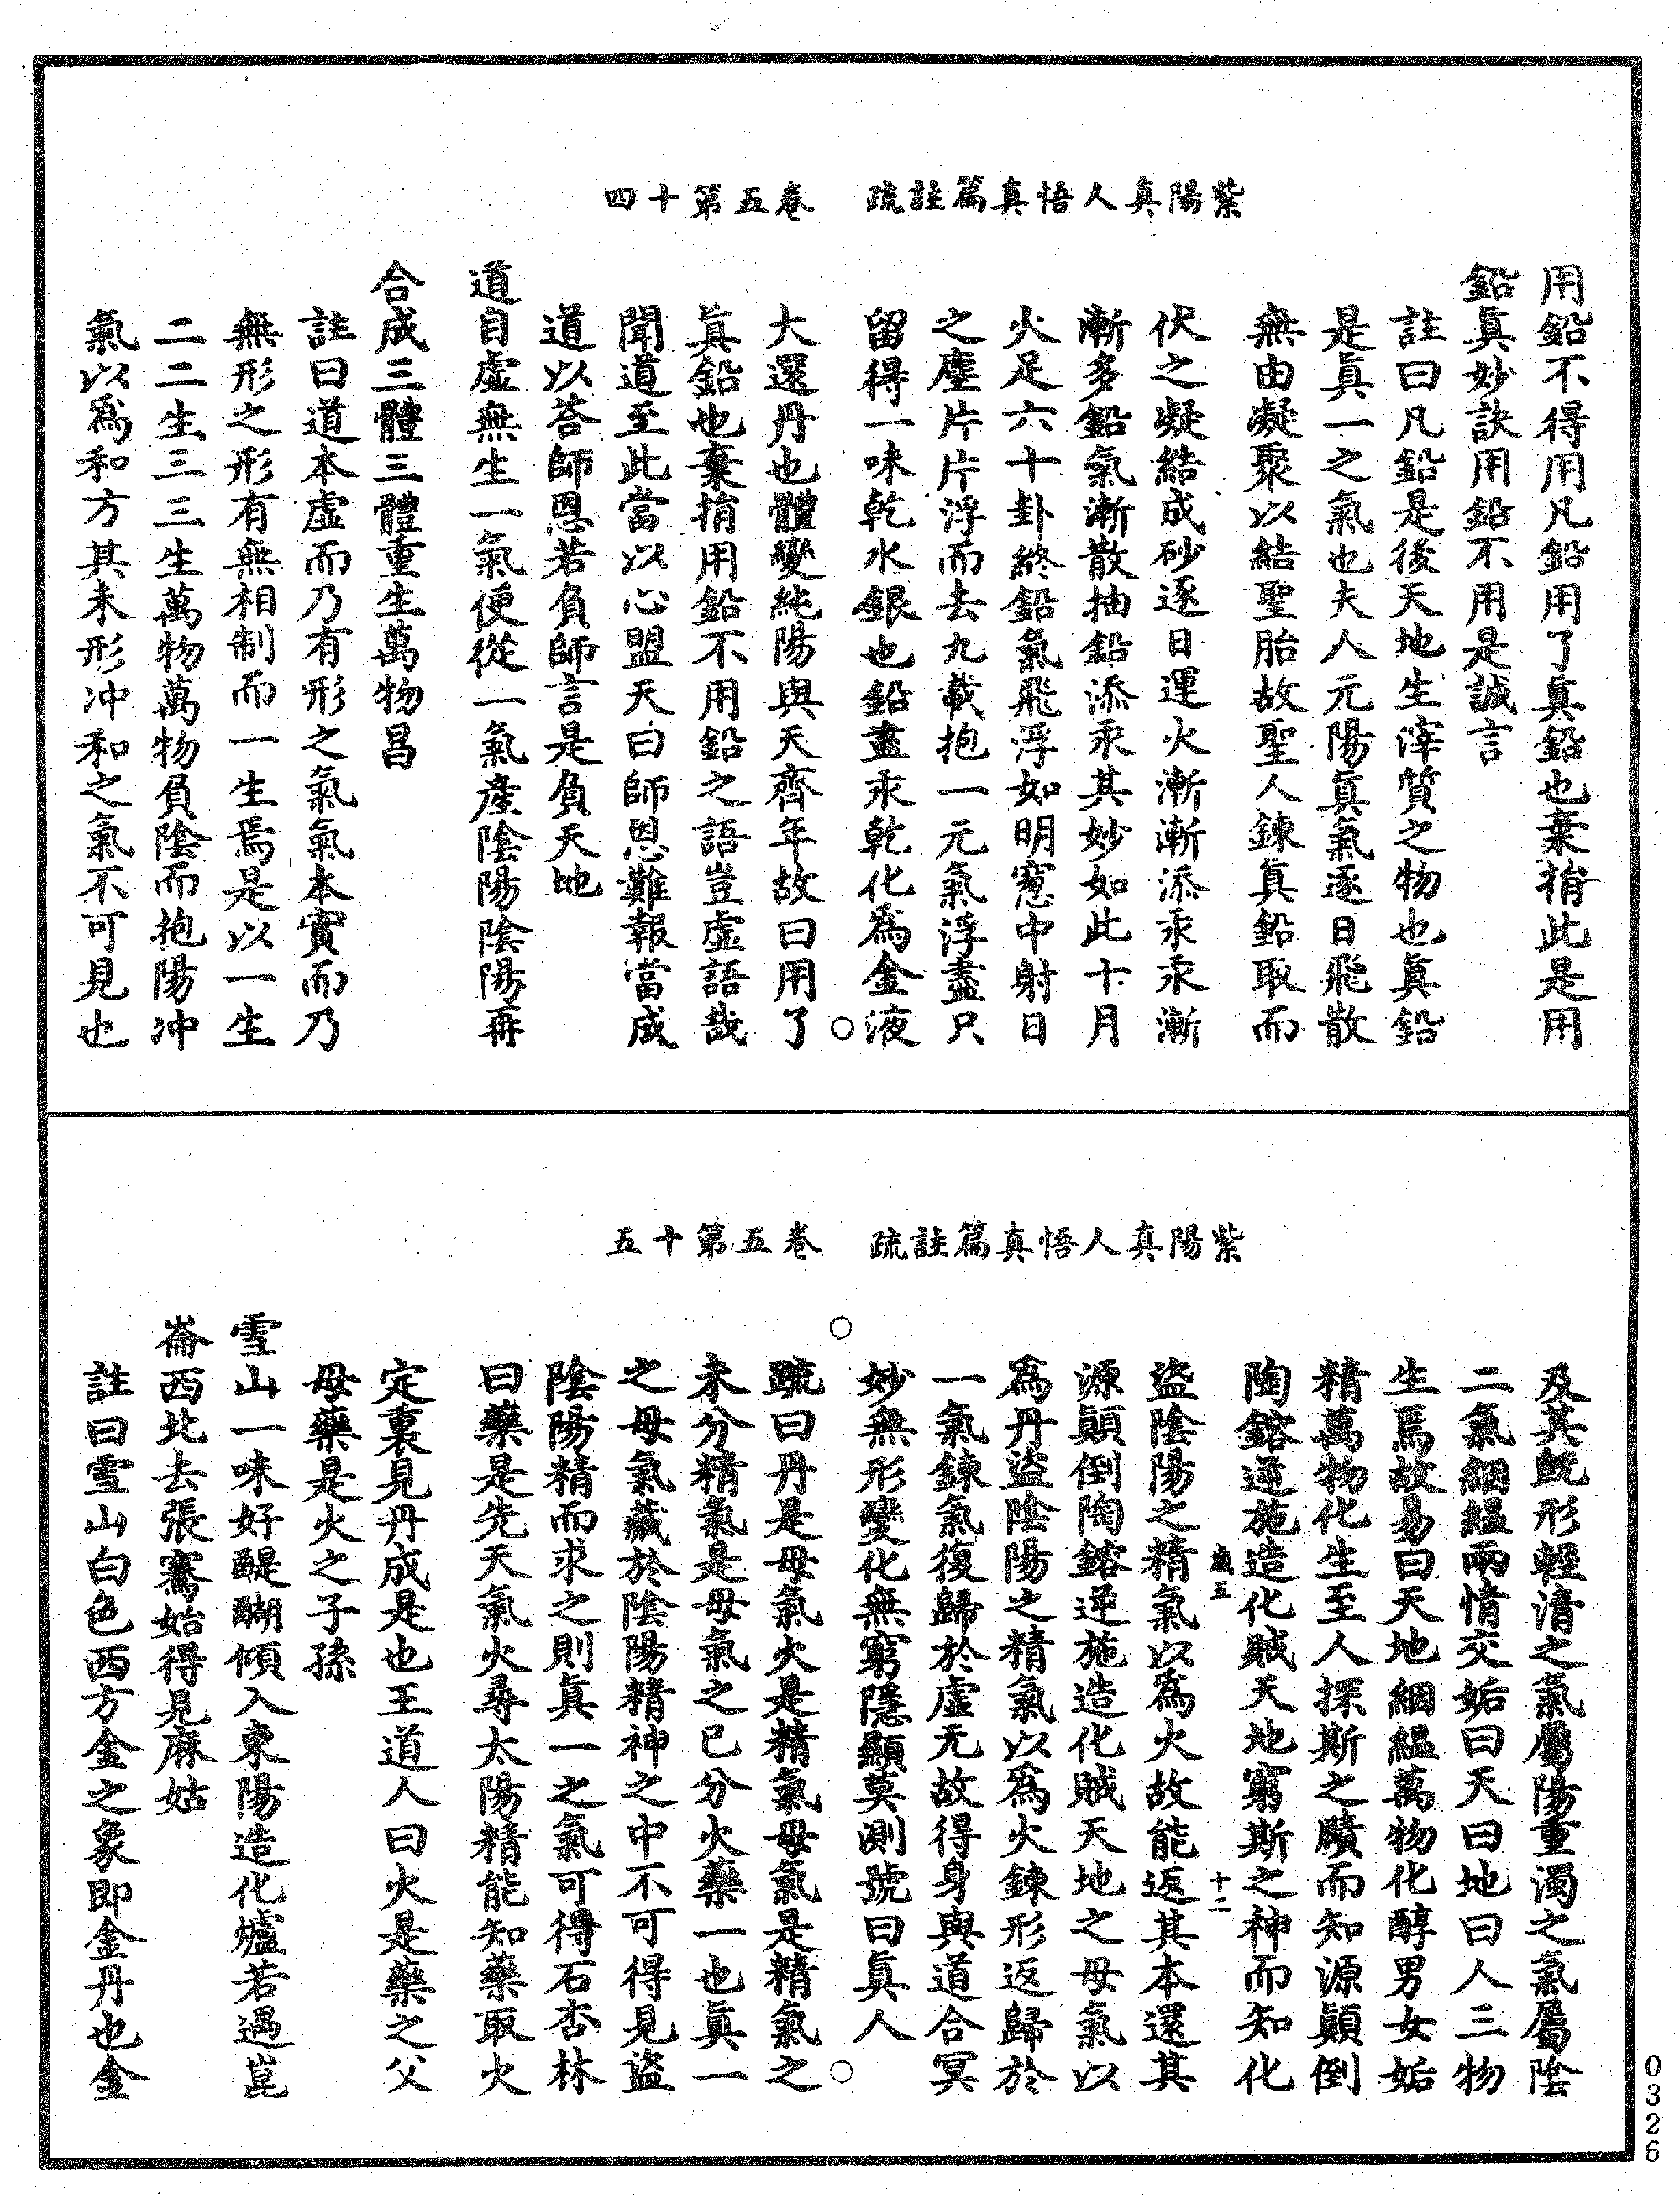 紫陽真人悟真篇註疏　卷五第十四
用鉛不得用凡鉛用了眞鉛也棄捐此是用
鉛眞妙訣用鉛不用是誠言
註曰凡鉛是後天地生滓質之物也眞鉛
是眞一之氣也夫人元陽眞氣逐日飛散
無由凝聚以結聖胎故聖人鍊眞鉛取而
伏之凝結成砂逐日運火漸漸添汞汞漸
漸多鉛氣漸散抽鉛添汞其妙如此十月
火足六十卦終鉛氣飛浮如明窻中射日
之塵片片浮而去九載抱一元氣浮盡只
留得一味乾水銀也鉛盡汞乾化爲金液
大還丹也體變純陽與天齊年故曰用了
眞鉛也棄捐用鉛不用鉛之語豈虛語哉
聞道至此當以心盟天曰師恩難報當成
道以荅師恩若負師言是負天地
道自虛無生一氣便從一氣產陰陽陰陽再
合成三體三體重生萬物昌
註曰道本虛而乃有形之氣氣本實而乃
無形之形有無相制而一生焉是以一生
二二生三三生萬物萬物負陰而抱陽冲
氣以爲和方其未形冲和之氣不可見也
紫陽真人悟真篇註疏　卷五第十五
及其旣形輕清之氣屬陽重濁之氣屬陰
二氣絪縕兩情交姤曰天曰地曰人三物
生焉故易曰天地絪縕萬物化醇男女姤
精萬物化生至人探斯之賾而知源顚倒
陶鎔逆施造化賊天地窮斯之神而知化
歲五　十二
盜陰陽之精氣以爲火故能返其本還其
源顚倒陶鎔逆施造化賊天地之母氣以
爲丹盜陰陽之精氣以爲火鍊形返歸於
一氣鍊氣復歸於虛无故得身與道合冥
妙無形變化無窮隱顯莫測號曰眞人
疏曰丹是母氣火是精氣母氣是精氣之
未分精氣是母氣之已分火藥一也眞一
之母氣藏於陰陽精神之中不可得見盜
陰陽精而求之則眞一之氣可得石杏林
曰藥是先天氣火尋太陽精能知藥取火
定裏見丹成是也王道人曰火是藥之父
母藥是火之子孫
雪山一味好醍醐傾入東陽造化爐若過崑
崙西北去張騫始得見麻姑
註曰雪山白色西方金之象即金丹也金
0326